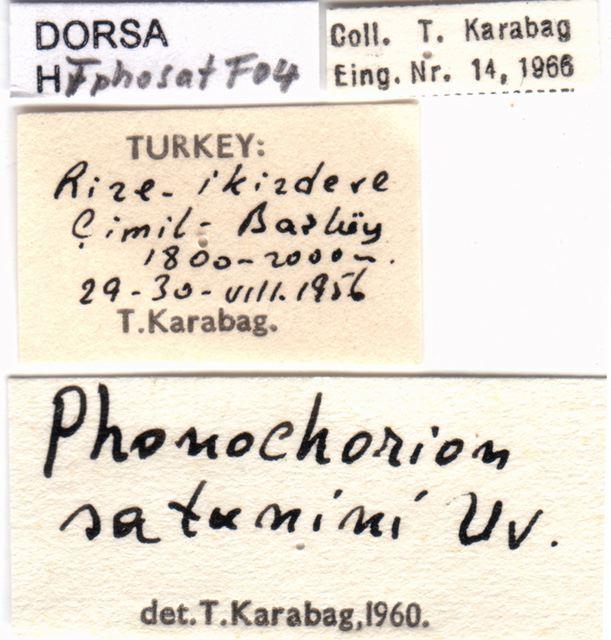 DORSA
HTphosatF04
Coll. T. Karabag
Eing. Nr. 14, 1966
TURKEY:
Rize - ikizdere
Çimil - Başköy
1800-2000m.
29-30-VIII.1956
T.Karabag.
Phonochorion
satunini Uv.
det.T.Karabag,1960.